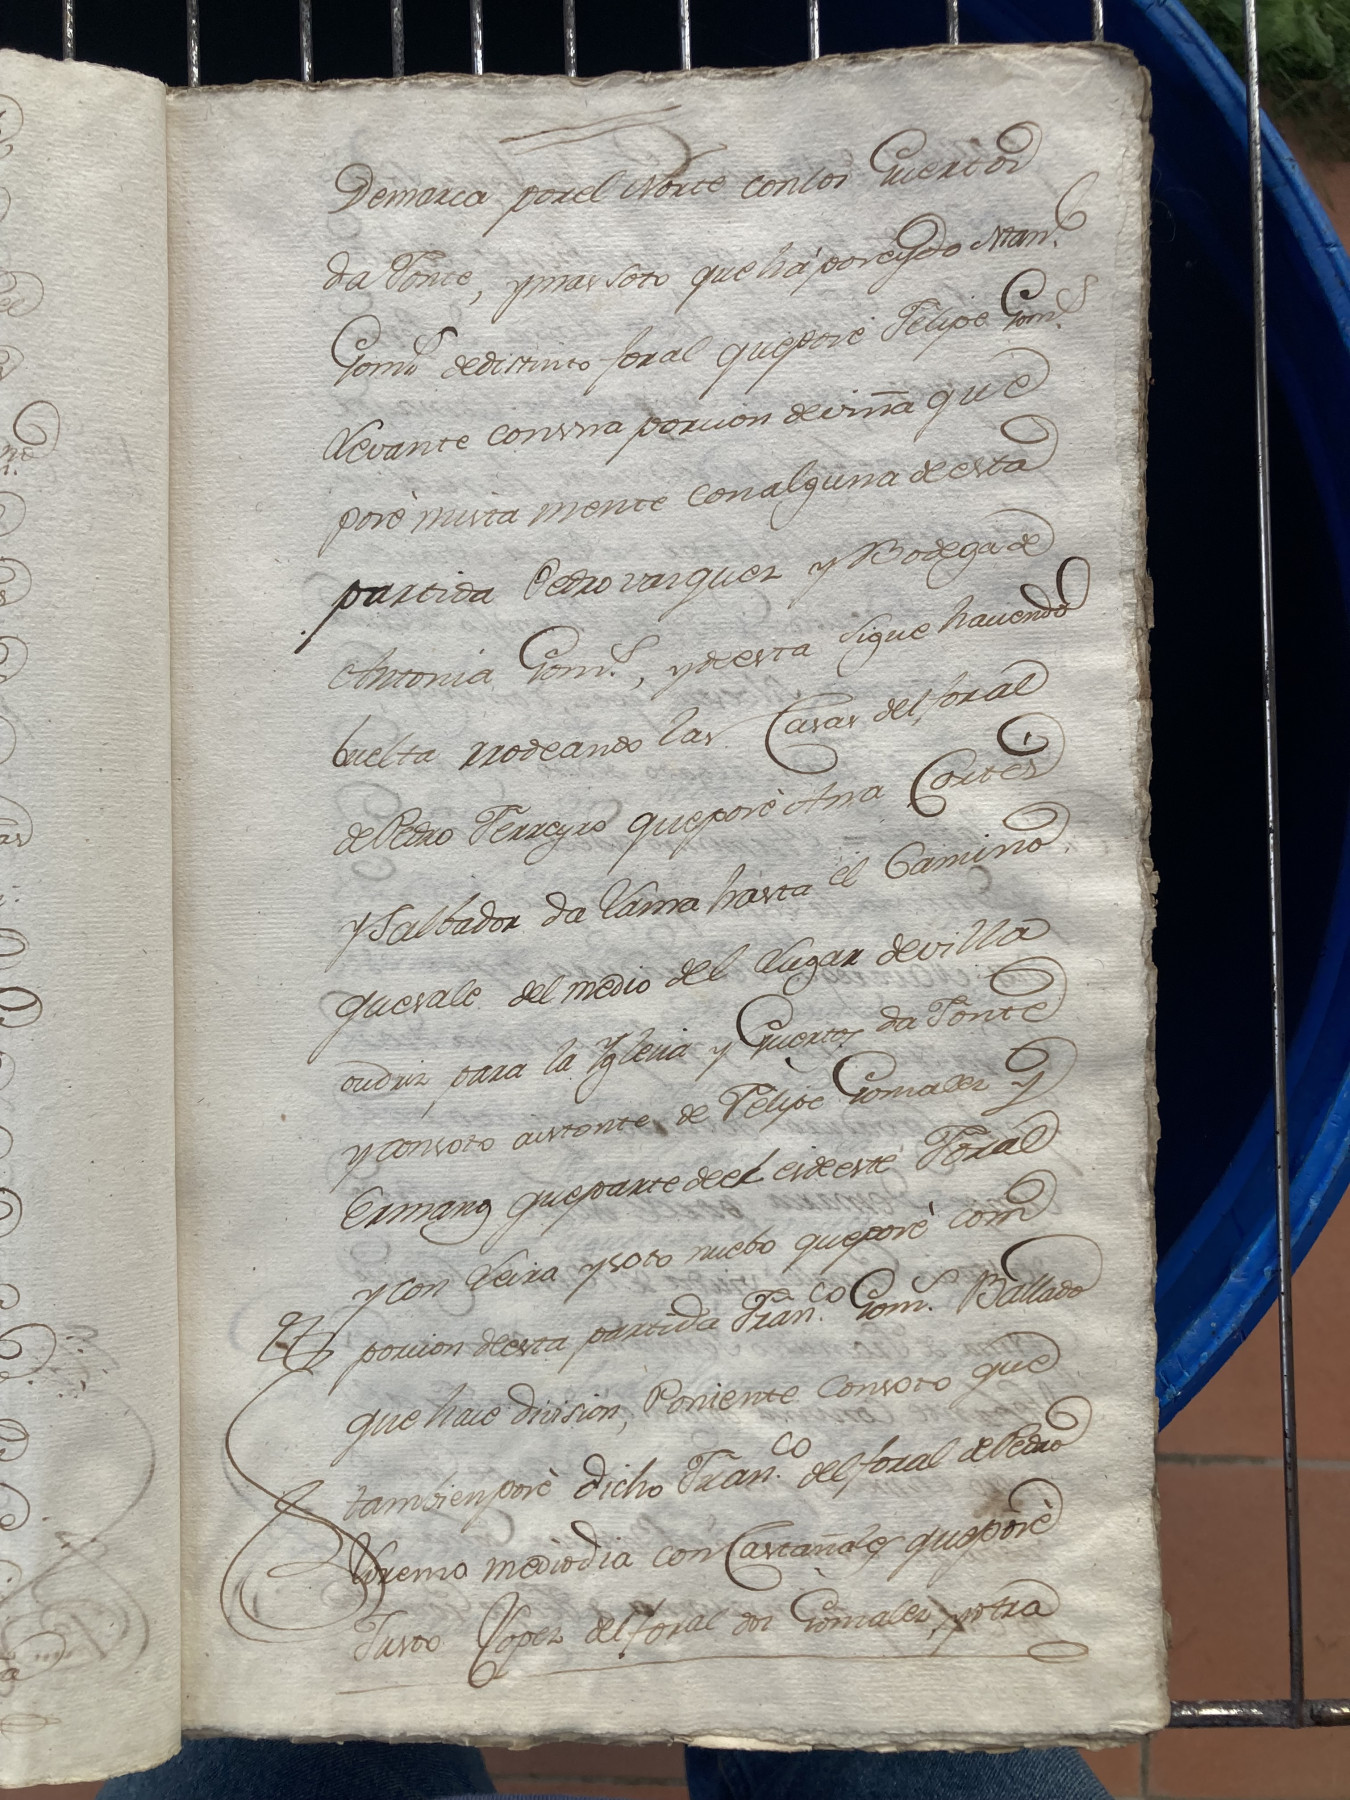 Demarca porel Norte conlos Guertos
da Fonte, ymas soto que há poreydo Man.
Gom.s dedistinto foral queporè Felipe Gom.s
Levante conuna porcion deviña que
porè mista mente conalguna deesta
partida Pedro vazquez y Bodega de
Antonia Gom.s, ydeesta sigue haciendo
buelta rrodeando las Casas del foral
dePedro Ferreyro queporè Ana Cortes
y Salbador da Lama hasta el Camino
quesale del medio del Lugar devilla
oudriz para la Yglesia y Guertos da Fonte
yconsoto avstante de Felipe Gomalez y
Ermano queparte deel esdeeste Foral
y con Leira ysoto nuebo queporè com
porcion deesta partida Fran.co Gom.s Ballado
que haie division, Poniente consoto que
tambienporè dicho Fran.co del foral dePedro
mediodia con Castañales queporè
Justo Lopez del foral dos Gomalez, yotra